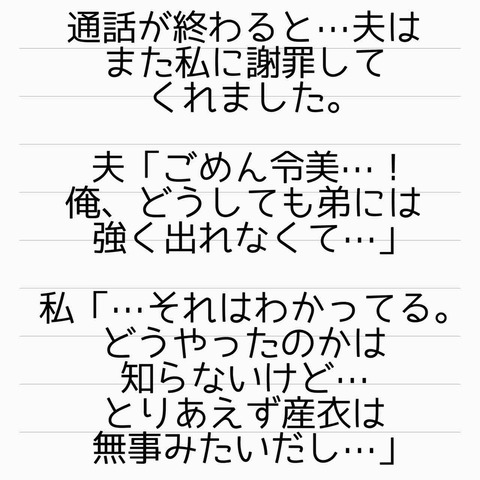 通話が終わると…夫は
また私に謝罪して
くれました。
夫「ごめん令美…！
俺、どうしても弟には
強く出れなくて…」
私「…それはわかってる。
どうやったのかは
知らないけど…
とりあえず産衣は
無事みたいだし…」